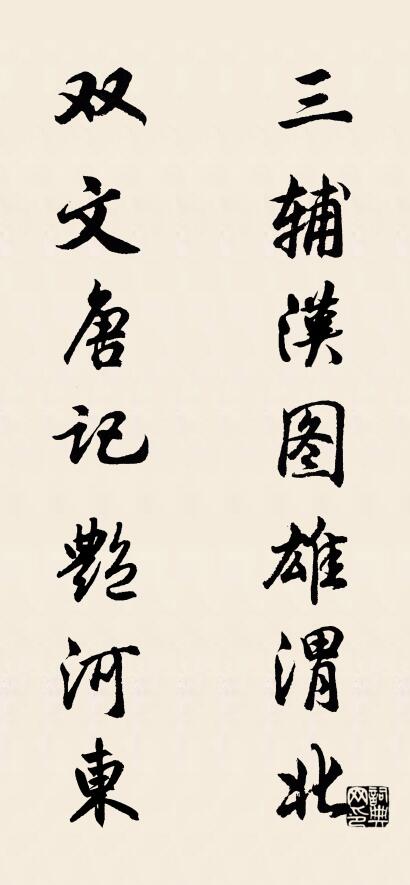 三辅漢图雄渭北
双文唐记艷河東
詞典网印